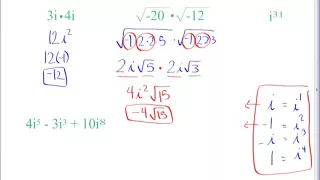 3i·4i
12i²
12(-1)
-12
√-20 · √-12
√-1·2·2·5 · √-1·2·2·3
2i√5 · 2i√3
4i²√15
-4√15
i³¹
i = i¹
-1 = i²
-i = i³
1 = i⁴
4i⁵ - 3i³ + 10i⁸